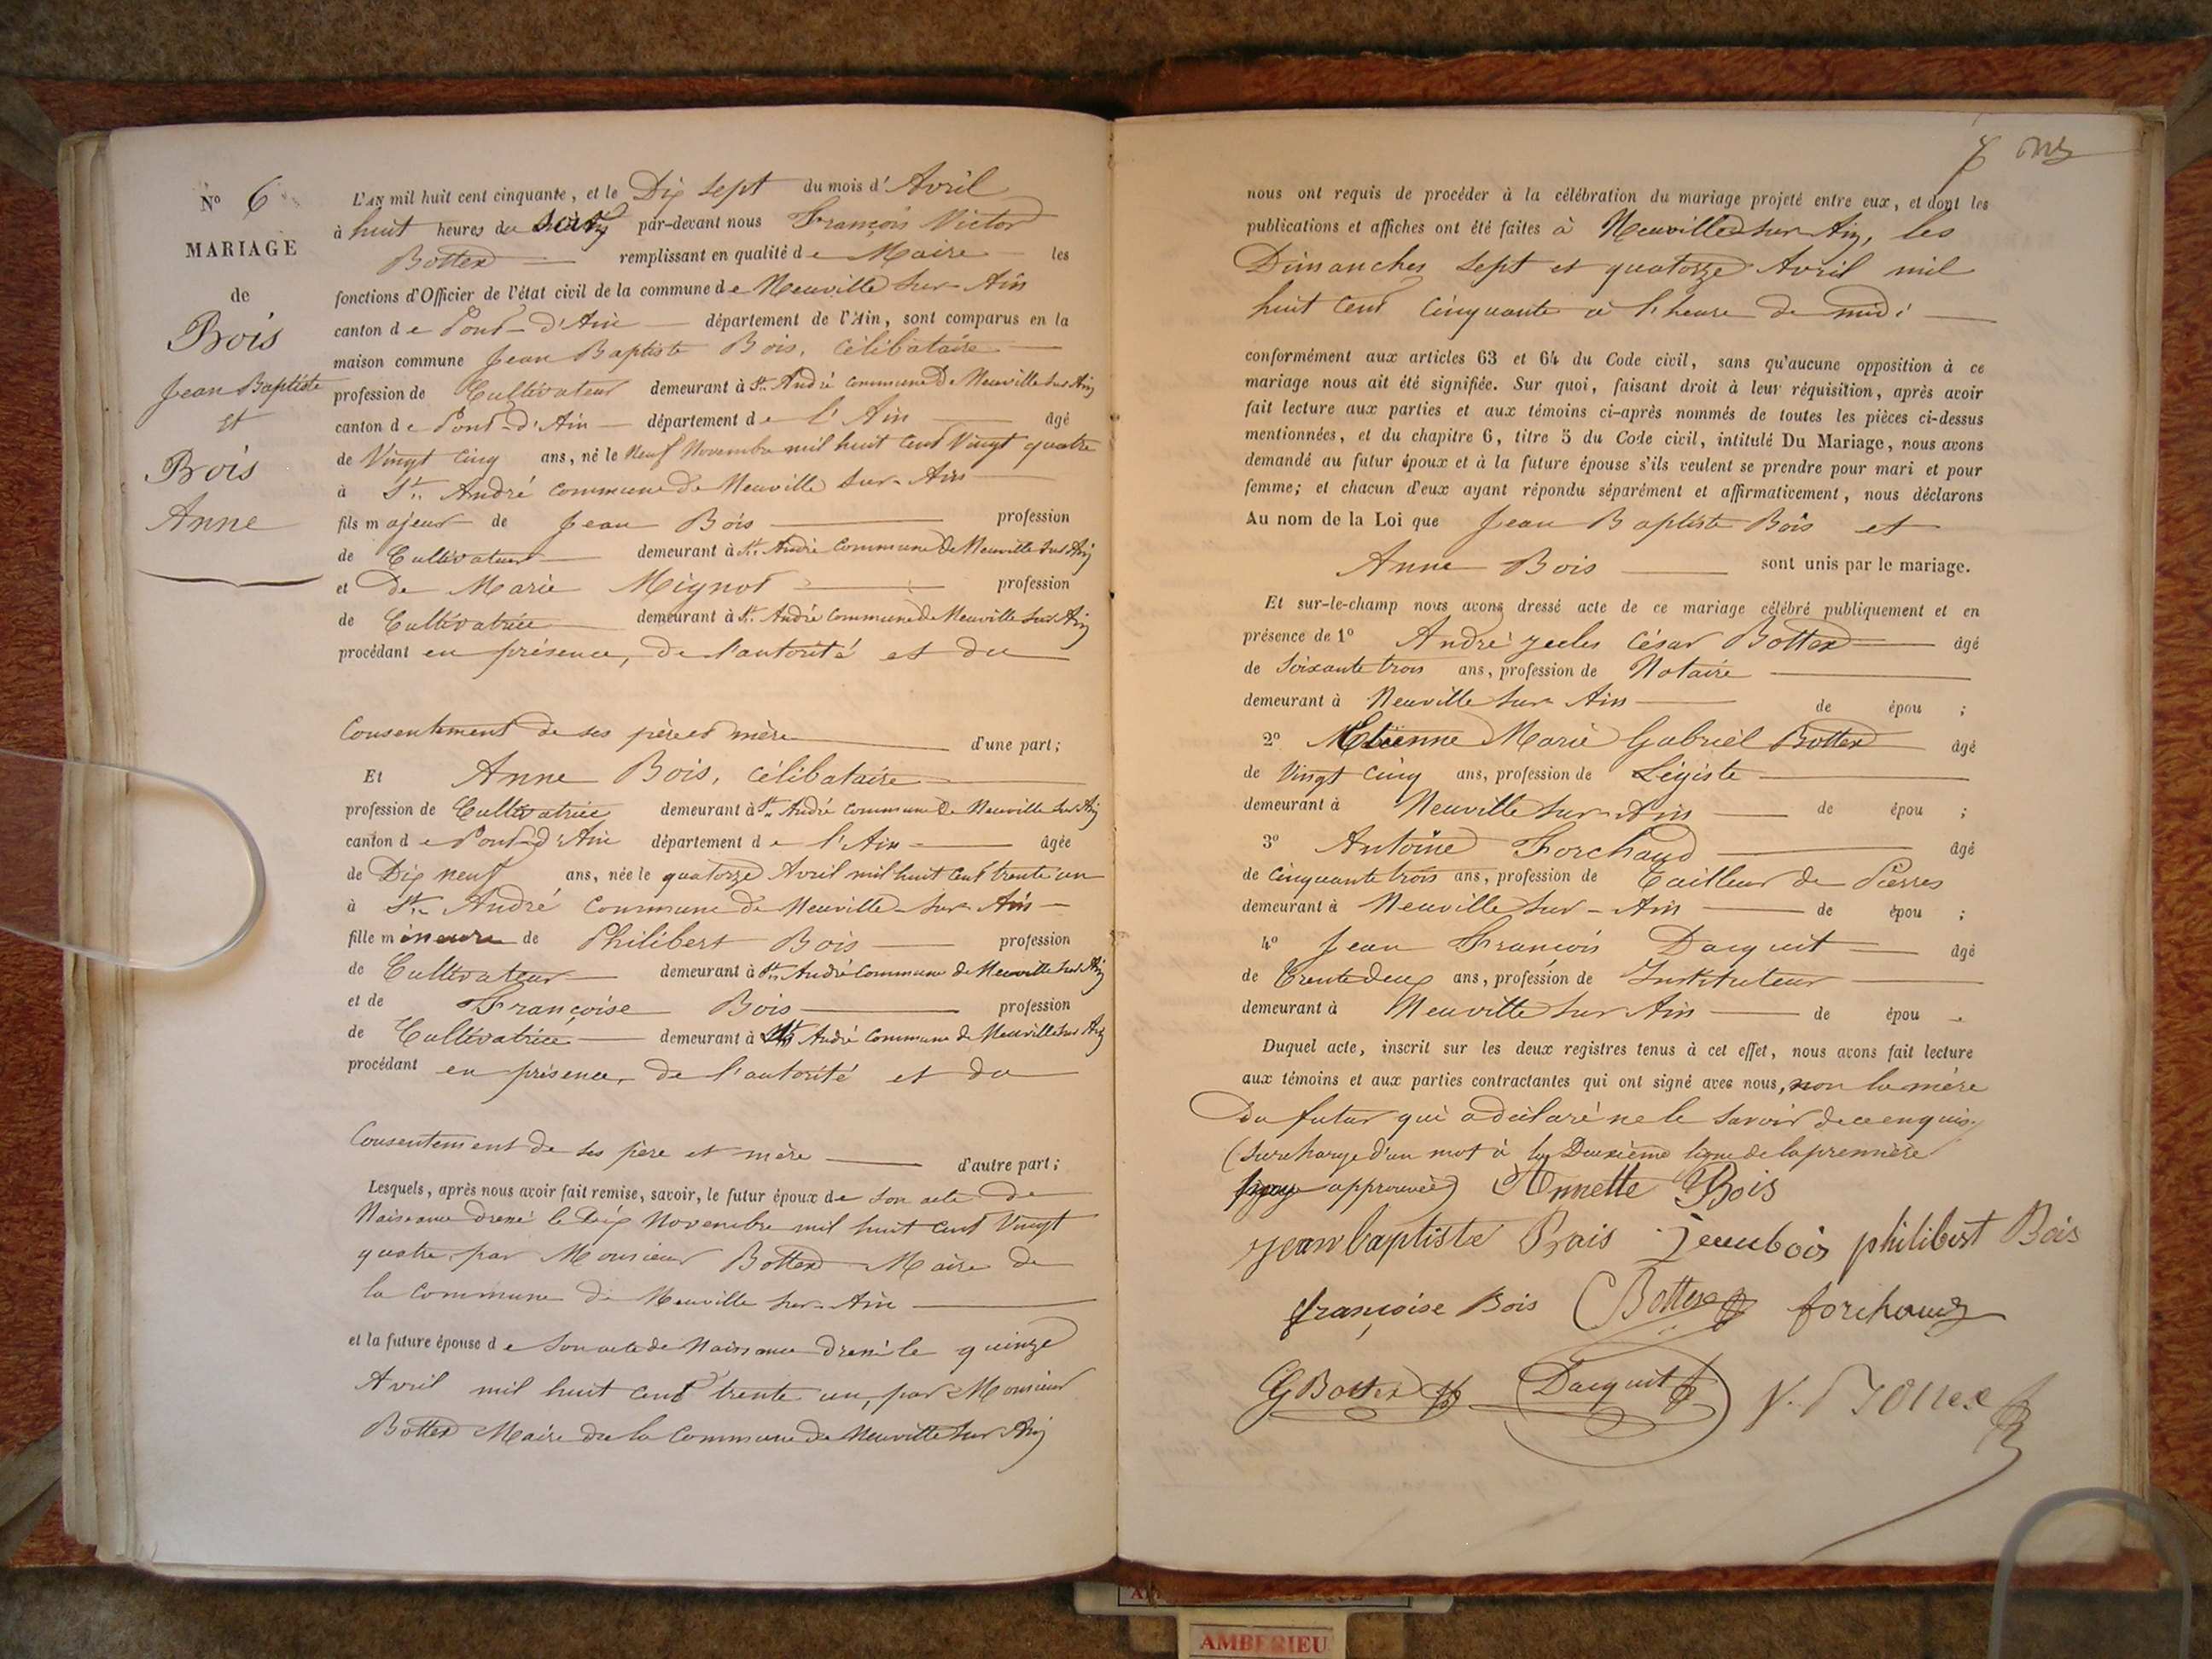 N° 6
MARIAGE
de
Bois
Jean Baptiste
et
Bois
Anne
L'AN mil huit cent cinquante, et le Dix sept du mois d'Avril
à huit heures du soir par-devant nous François Victor
Bottex remplissant en qualité de Maire les
fonctions d'Officier de l'état civil de la commune de Neuville sur Ain
canton de Pont-d'Ain département de l'Ain, sont comparus en la
maison commune Jean Baptiste Bois, célibataire
profession de Cultivateur demeurant à St. André commune De Neuville sur Ain
canton de Pont-d'Ain département de l'Ain âgé
de Vingt cinq ans, né le Neuf Novembre mil huit cent Vingt quatre
à St. André commune de Neuville sur Ain
fils majeur de Jean Bois profession
de Cultivateur demeurant à St. André commune De Neuville sur Ain
et De Marie Mignot profession
de Cultivatrice demeurant à St. André commune de Neuville sur Ain
procédant en présence, de l'autorité et du
Consentement de ses père et mère d'une part;
Et Anne Bois, célibataire
profession de Cultivatrice demeurant à St. André commune De Neuville sur Ain
canton de Pont-d'Ain département de l'Ain âgée
de Dix neuf ans, née le quatorze Avril mil huit cent trente un
à St. André commune de Neuville sur Ain
fille mineure de Philibert Bois profession
de Cultivateur demeurant à St. André commune de Neuville sur Ain
et de Françoise Bois profession
de Cultivatrice demeurant à St André commune de Neuville sur Ain
procédant en présence, de l'autorité et du
Consentement de ses père et mère d'autre part;
Lesquels, après nous avoir fait remise, savoir, le futur époux de son acte de
Naissance dressé le Dix Novembre mil huit cent Vingt
quatre, par Monsieur Bottex Maire de
la Commune de Neuville sur Ain
et la future épouse de son acte de Naissance dressé le quinze
Avril mil huit cent trente un, par Monsieur
Bottex Maire de la Commune de Neuville sur Ain
nous ont requis de procéder à la célébration du mariage projeté entre eux, et dont les
publications et affiches ont été faites à Neuville sur Ain, les
Dimanches sept et quatorze Avril mil
huit cent cinquante à l'heure de midi
conformément aux articles 63 et 64 du Code civil, sans qu'aucune opposition à ce
mariage nous ait été signifiée. Sur quoi, faisant droit à leur réquisition, après avoir
fait lecture aux parties et aux témoins ci-après nommés de toutes les pièces ci-dessus
mentionnées, et du chapitre 6, titre 5 du Code civil, intitulé Du Mariage, nous avons
demandé au futur époux et à la future épouse s'ils veulent se prendre pour mari et pour
femme; et chacun d'eux ayant répondu séparément et affirmativement, nous déclarons
Au nom de la Loi que Jean Baptiste Bois et
Anne Bois sont unis par le mariage.
Et sur-le-champ nous avons dressé acte de ce mariage célébré publiquement et en
présence de 1° André Jules César Bottex âgé
de soixante trois ans, profession de Notaire
demeurant à Neuville sur Ain de épou ;
2° Etienne Marie Gabriel Bottex âgé
de Vingt cinq ans, profession de Légiste
demeurant à Neuville sur Ain de épou ;
3° Antoine Forchaud âgé
de cinquante trois ans, profession de Tailleur de Pierres
demeurant à Neuville sur-Ain de épou ;
4° Jean François Dacquit âgé
de Trente deux ans, profession de Instituteur
demeurant à Neuville sur Ain de épou .
Duquel acte, inscrit sur les deux registres tenus à cet effet, nous avons fait lecture
aux témoins et aux parties contractantes qui ont signé avec nous, non la mère
Du futur qui a déclaré ne le savoir de ce enquis.
(Surcharge d'un mot à la Deuxième ligne de la première
page approuvée) Annette Bois
jean baptiste Bois jean bois philibert Bois
françoise Bois Bottex forchaud
G Bottex Dacquit V. Bottex
AMBERIEU